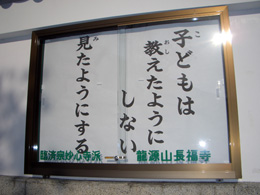 子どもは
教えたように
しない
見たようにする
龍源山長福寺
臨済宗妙心寺派